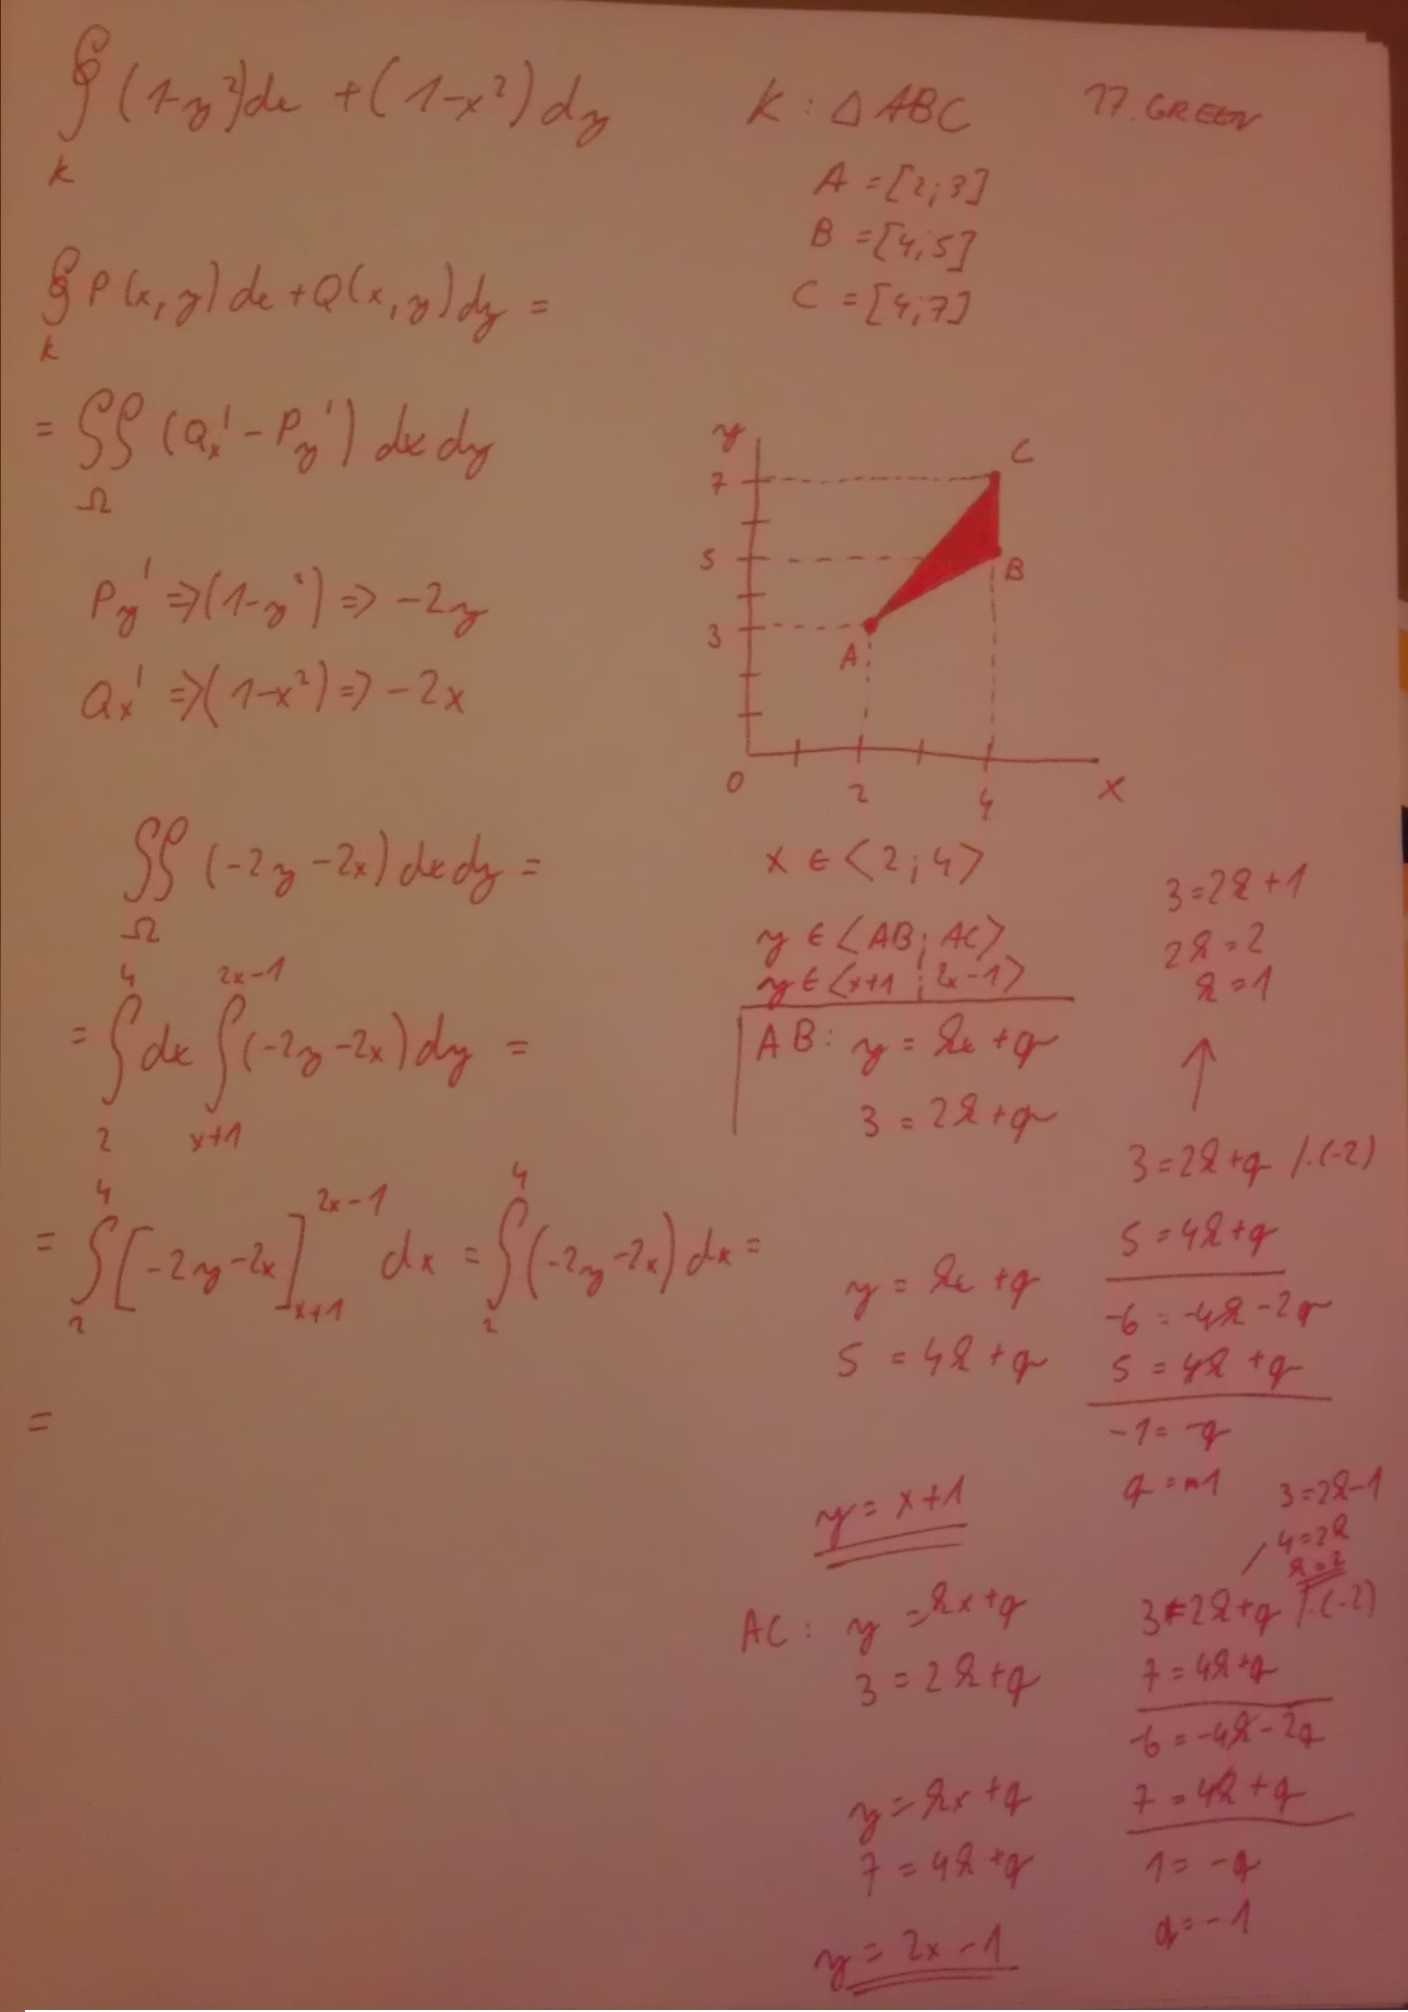 ∮ (1-y²)dx + (1-x²) dy
K
K : △ ABC
17. GREEN
A = [2;3]
B = [4;5]
C = [4;7]
∮ P(x,y) dx + Q(x,y) dy =
K
= ∬ (Qx' - Py') dx dy
Ω
Py' => (1-y²) => -2y
Qx' => (1-x²) => -2x
y
7
5
3
0
2
4
x
A
B
C
∬ (-2y -2x) dx dy =
Ω
4 2x-1
= ∫ dx ∫ (-2y -2x) dy =
2 x+1
4 2x-1 4
= ∫ [-2y-2x] dx = ∫ (-2y-2x) dx =
2 x+1 2
=
x ∈ <2;4>
y ∈ <AB; AC>
y ∈ <x+1 ; 2x-1>
AB: y = kx + q
3 = 2k + q
y = kx + q
5 = 4k + q
y = x+1
3 = 2k + 1
2k = 2
k = 1
↑
3 = 2k + q /.(-2)
5 = 4k + q
-6 = -4k - 2q
5 = 4k + q
-1 = -q
q = 1
AC: y = kx + q
3 = 2k + q
y = kx + q
7 = 4k + q
y = 2x - 1
3 = 2k - 1
4 = 2k
k = 2
3 = 2k + q /.(-2)
7 = 4k + q
-6 = -4k - 2q
7 = 4k + q
1 = -q
q = -1